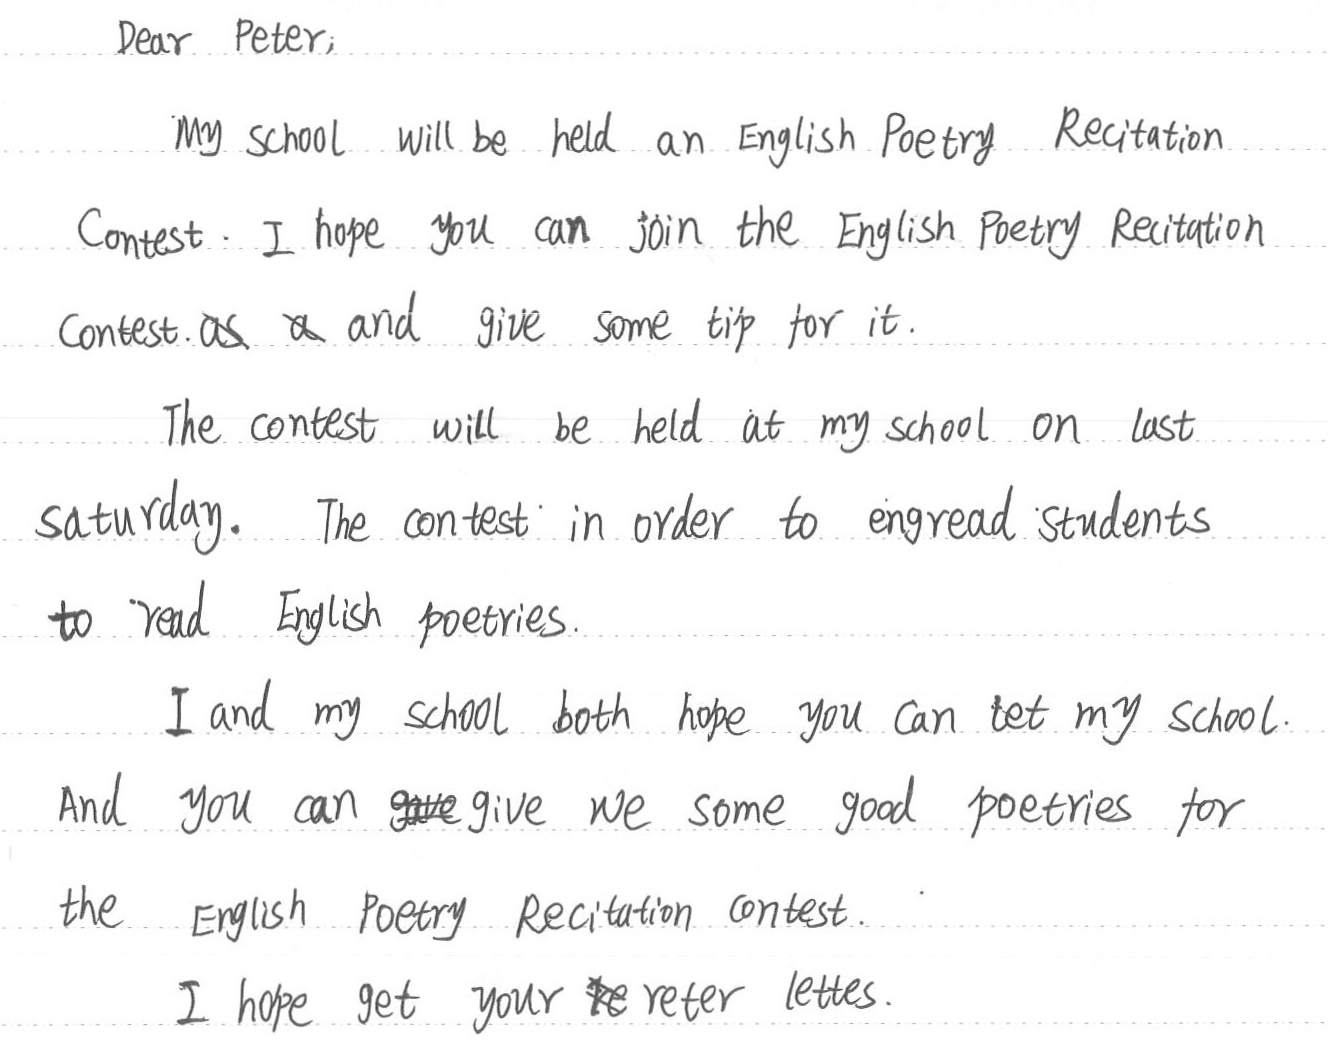 Dear Peter,
My school will be held an English Poetry Recitation
Contest. I hope you can join the English Poetry Recitation
Contest. and give some tip for it.
The contest will be held at my school on last
saturday. The contest in order to engread students
to read English poetries.
I and my school both hope you can tet my school.
And you can give we some good poetries for
the English Poetry Recitation contest.
I hope get your reter lettes.